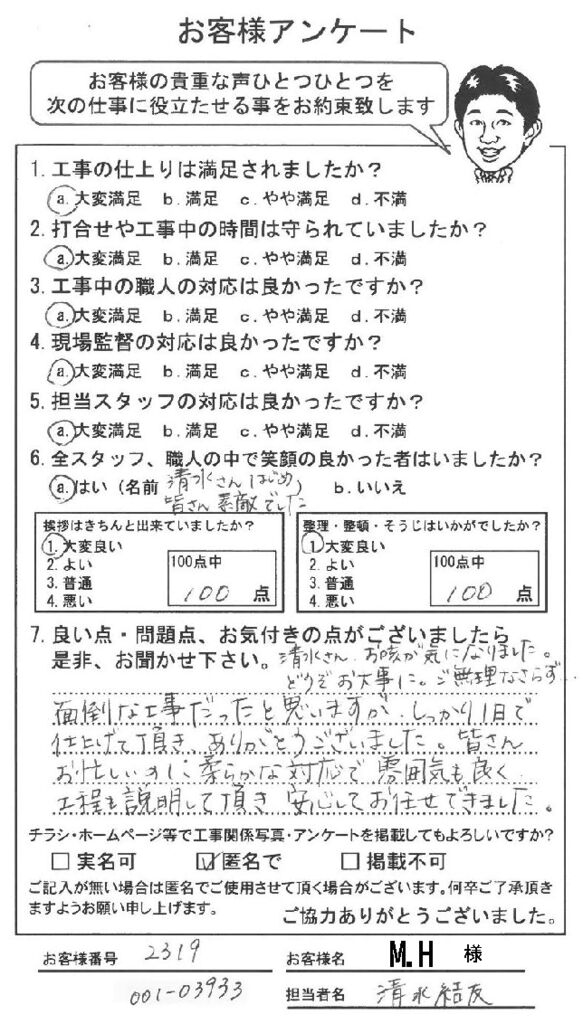 お客様アンケート
お客様の貴重な声ひとつひとつを
次の仕事に役立たせる事をお約束致します
1.工事の仕上りは満足されましたか？
a.大変満足 b.満足 c.やや満足 d.不満
2.打合せや工事中の時間は守られていましたか？
a.大変満足 b.満足 c.やや満足 d.不満
3.工事中の職人の対応は良かったですか？
a.大変満足 b.満足 c.やや満足 d.不満
4.現場監督の対応は良かったですか？
a.大変満足 b.満足 c.やや満足 d.不満
5.担当スタッフの対応は良かったですか？
a.大変満足 b.満足 c.やや満足 d.不満
6.全スタッフ、職人の中で笑顔の良かった者はいましたか？
a.はい（名前 清水さんはじめ ） b.いいえ
皆さん素敵でした
挨拶はきちんと出来ていましたか？
1.大変良い
2.よい
3.普通
4.悪い
100点中
100 点
整理・整頓・そうじはいかがでしたか？
1.大変良い
2.よい
3.普通
4.悪い
100点中
100 点
7.良い点・問題点、お気付きの点がございましたら
是非、お聞かせ下さい。清水さん、お咳が気になりました。
どうぞお大事に。ご無理なさらず…
面倒な工事だったと思いますが、しっかり1日で
仕上げて頂き、ありがとうございました。皆さん
お忙しいのに柔らかな対応で雰囲気も良く
工程も説明して頂き安心してお任せできました。
チラシ・ホームページ等で工事関係写真・アンケートを掲載してもよろしいですか？
実名可 匿名で 掲載不可
ご記入が無い場合は匿名でご使用させて頂く場合がございます。何卒ご了承頂き
ますようお願い申し上げます。
ご協力ありがとうございました。
お客様番号 2319
お客様名 M.H 様
001-03933
担当者名 清水結友